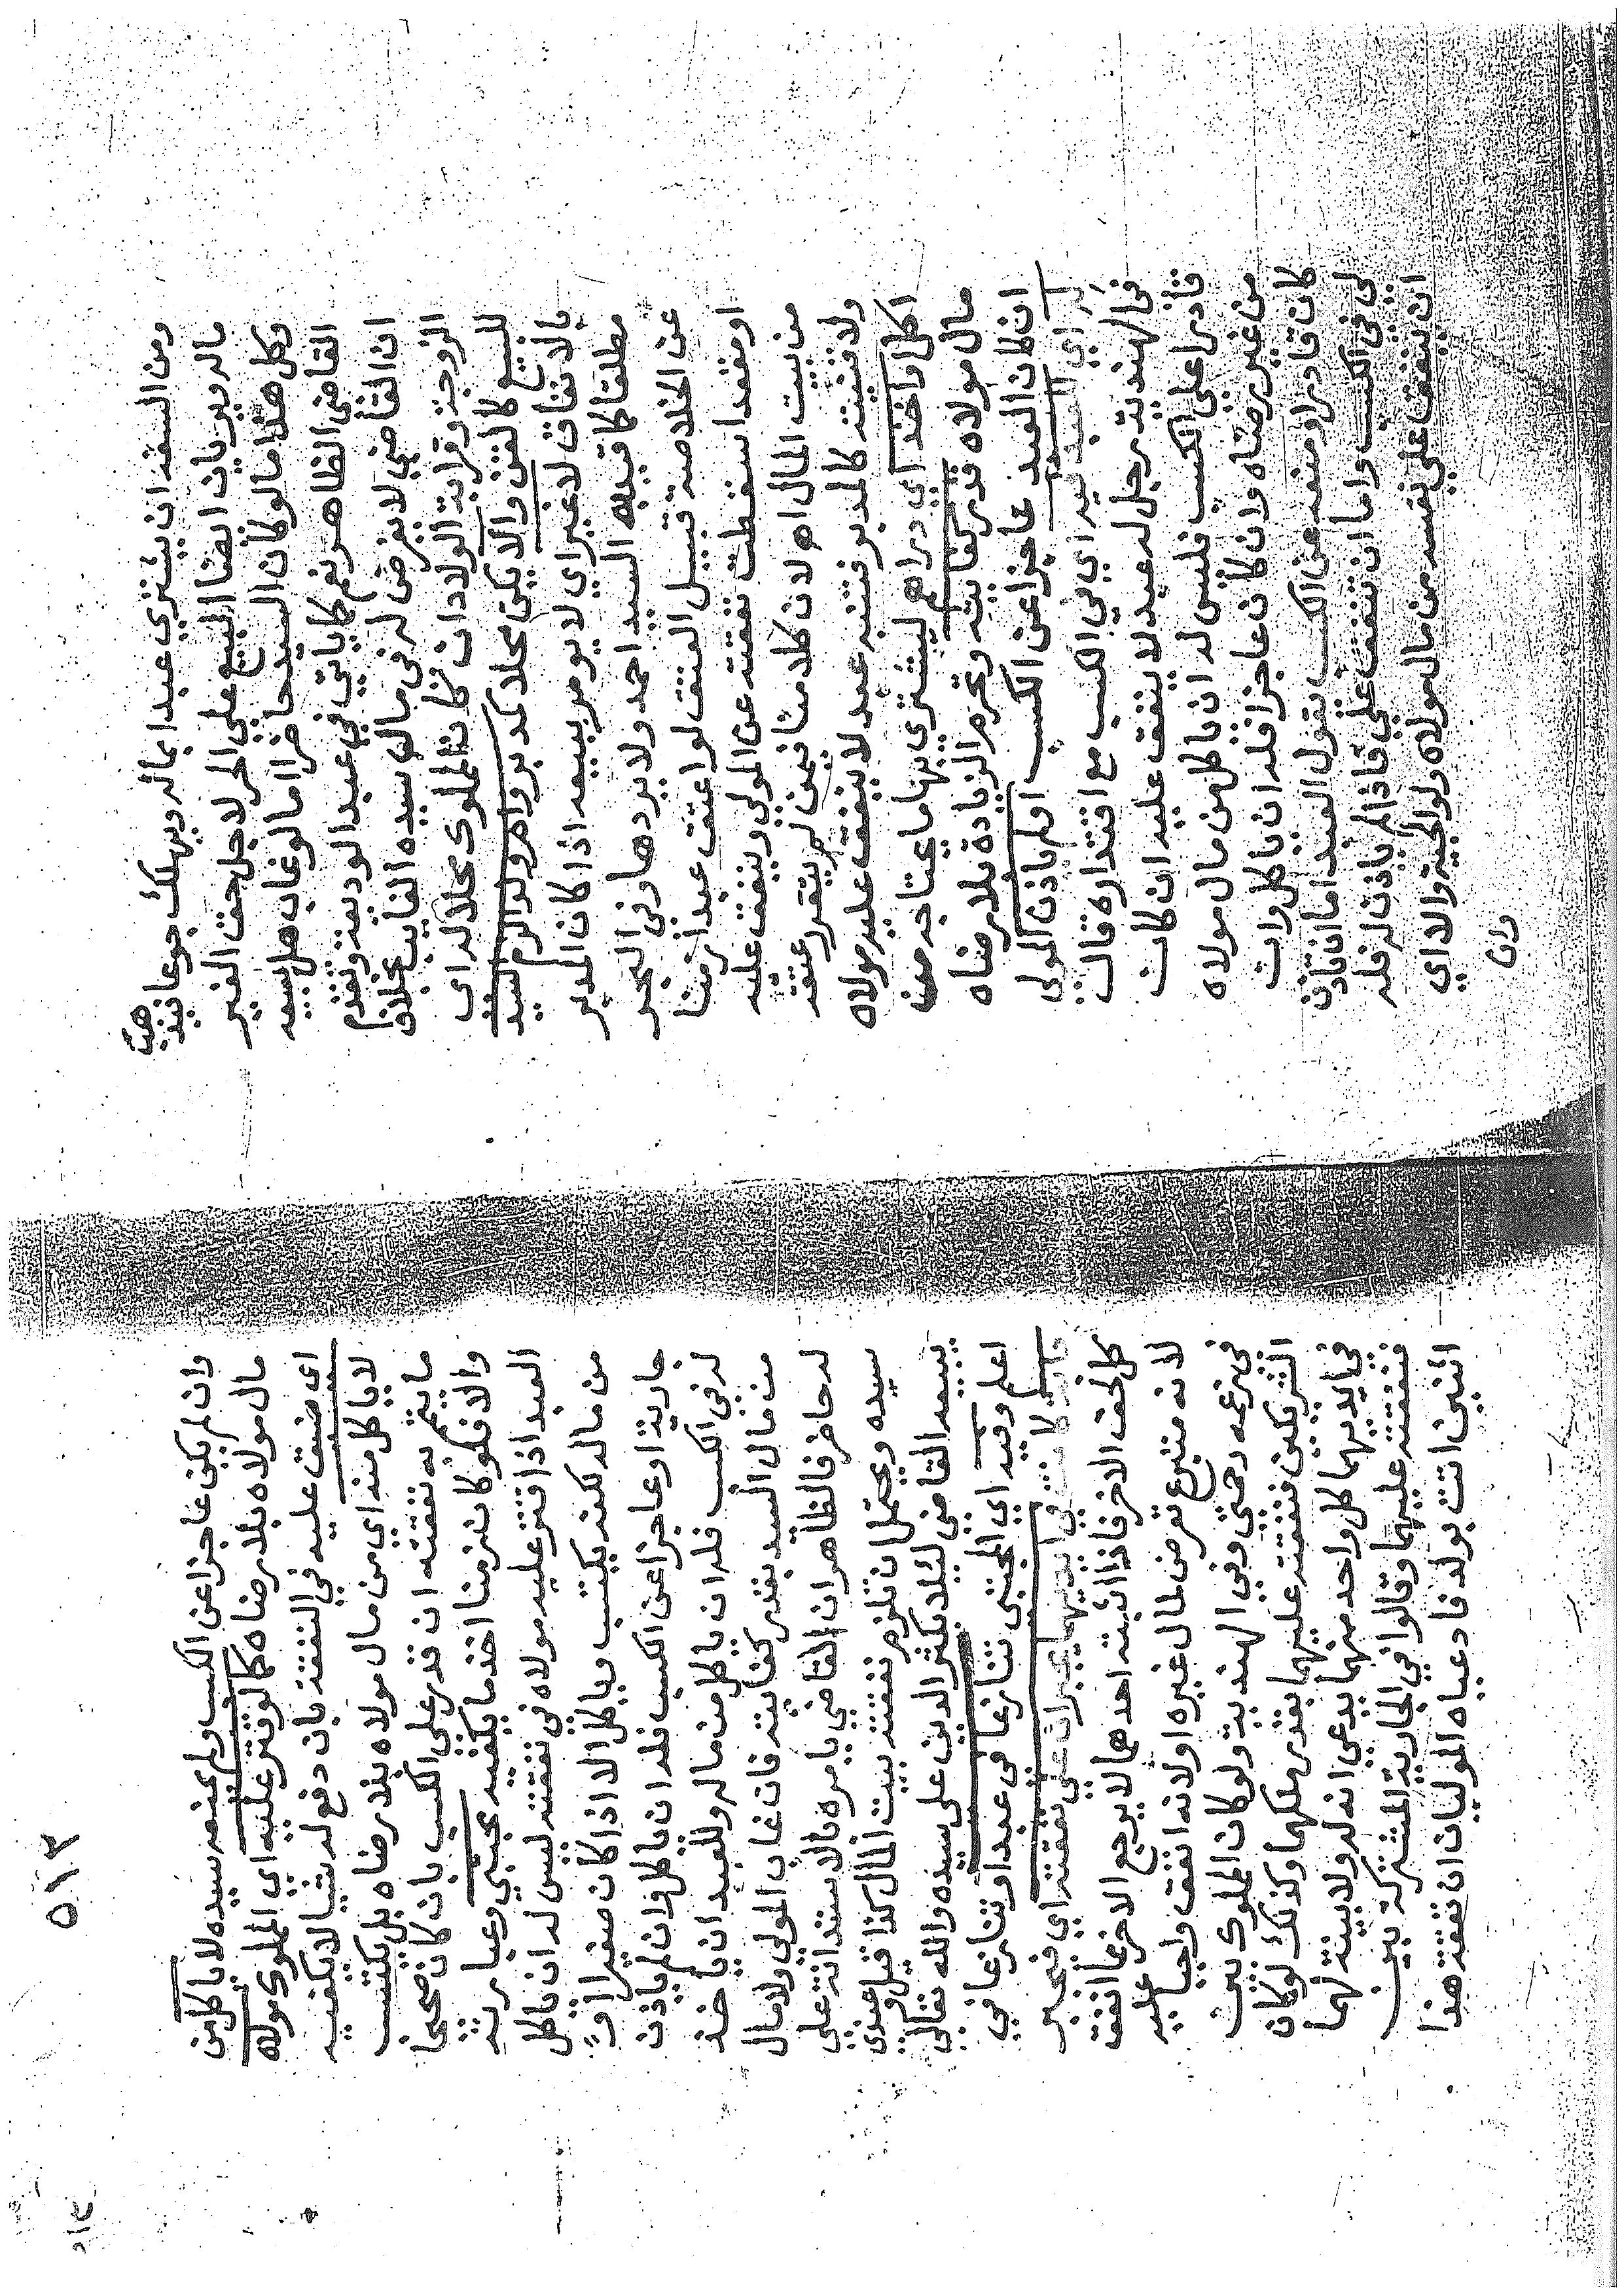 ومن السفه ان يشتري عبدا بماله ويهلك جوعا فيه
هب
ماله ويوبان ايضا البيع علي الحر لاجل حق الغير
وكل هذا ما لو كان السيد حاضرا اما لو غاب هل يبيعه
القاضي الظاهر نعم كما ياتي في عبد الوديعة وتقدم
ان القاضي لا يفرض له في مال سيده الغايب بخلاف
الزوجة وقرابة الولادات كان المملوك محلا له اي
للبيع كالقن والا يكن محلا كمدبر وام ولد الزم السيد
بالانفاق لا غير اي لا يومر ببيعه اذا كان المدبر
مطلقا كما قيده السيد احمد ولا يرد ها وفي البحر
عن الخلاصة قبيل العتق لو اعتق عبدا زمنا
او مقعدا سقطت نفقته عن المولي وينفق عليه
من بيت المال اه لان كلامنا فيمن لم يتقرر عتقه
ولا قنيته كالمدبر فتنبه عبد لا ينفق عليه مولاه
اكل واخذ اي دراهم ليشتري بها ما يحتاجه من
مال مولاه قدر كفايته وتحرم الزيادة بلا رضاه
ان كان العبد عاجزا عن الكسب او لم ياذن المولي
له اي السيد فيه اي في الكسب مع اقتداره قال
في الهندية رجل له عبد لا ينفق عليه ان كان
قادرا علي الكسب فليس له ان ياكل من مال مولاه
من غير رضاه وان كان عاجزا فله ان ياكل وان
كان قادرا ومنعه عن الكسب يقول العبد اما ان تاذن
لي في الكسب واما ان تنفق علي فاذا لم ياذن له فله
ان ينفق علي نفسه من مال مولاه ولو المجتبي والا اي
وان
٥١٣
وان لم يكن عاجزا عن الكسب ولم يمنعه سيده لا ياكل من
مال مولاه بلا رضاه كما لو قتر عليه اي المملوك مولاه
اي ضيق عليه في النفقة بان دفع له شيا لا يكفيه
لا ياكل منه اي من مال مولاه بلا رضاه بل يكتسب
ما يتم به نفقته ان قدر علي الكسب بان كان صحيحا
والا فلو كان زمنا اخذ ما يكفيه مجتبي وعبارته
العبد اذا قتر عليه مولاه في نفقته ليس له ان ياكل
من ماله لكنه يكتسب وياكل الا اذا كان صغيرا او
جارية او عاجزا عن الكسب فله ان ياكل وان لم ياذن
له في الكسب فله ان ياكل من ماله وللعبد ان ياخذ
من مال السيد بقدر كفايته فان غاب المولي ولا مال
له حاضر فالظاهر ان القاضي يامره بالاستدانة علي
سيده ويحتمل ان تلزم نفقته بيت المال كذا قيل وعندي
يبيعه القاضي ليلا يكثر الدين علي سيده والله تعالي
اعلم وفيه اي المجتبي تنازعا في عبد او تنازعا في
دابة كانت في ايديهما يجبران علي نفقته اي فيجبر
كل لحق الاخر فاذا اثبته احدهما لا يرجع الاخر بما انفق
لانه متبرع تعرض لمال غيره او لانه انفق واجبا عليه
في زعمه رحمتي وفي الهندية ولو كان المملوك بين
الشريكين فنفقته عليهما بقدر ملكهما وكذلك لو كان
في ايديهما كل واحد منهما يدعي انه له ولا بينة لهما
فنفقته عليهما وقالوا في الجارية المشتركة بين
اثنين اتت بولد فادعياه الموليان ان نفقة هذا